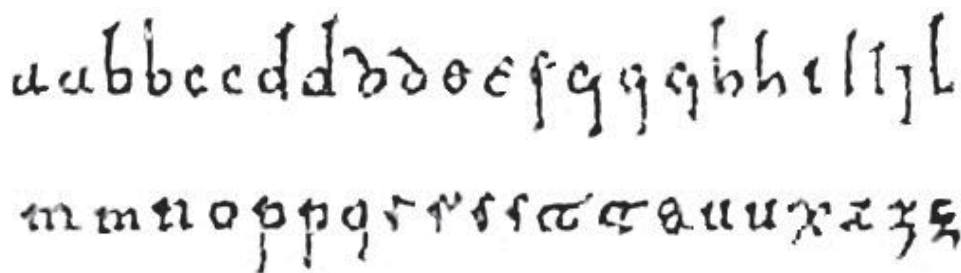 a a b b c c d d d d e e f g g g h h i l l j l
m m n o p p q r r s s t t t u u x z z z